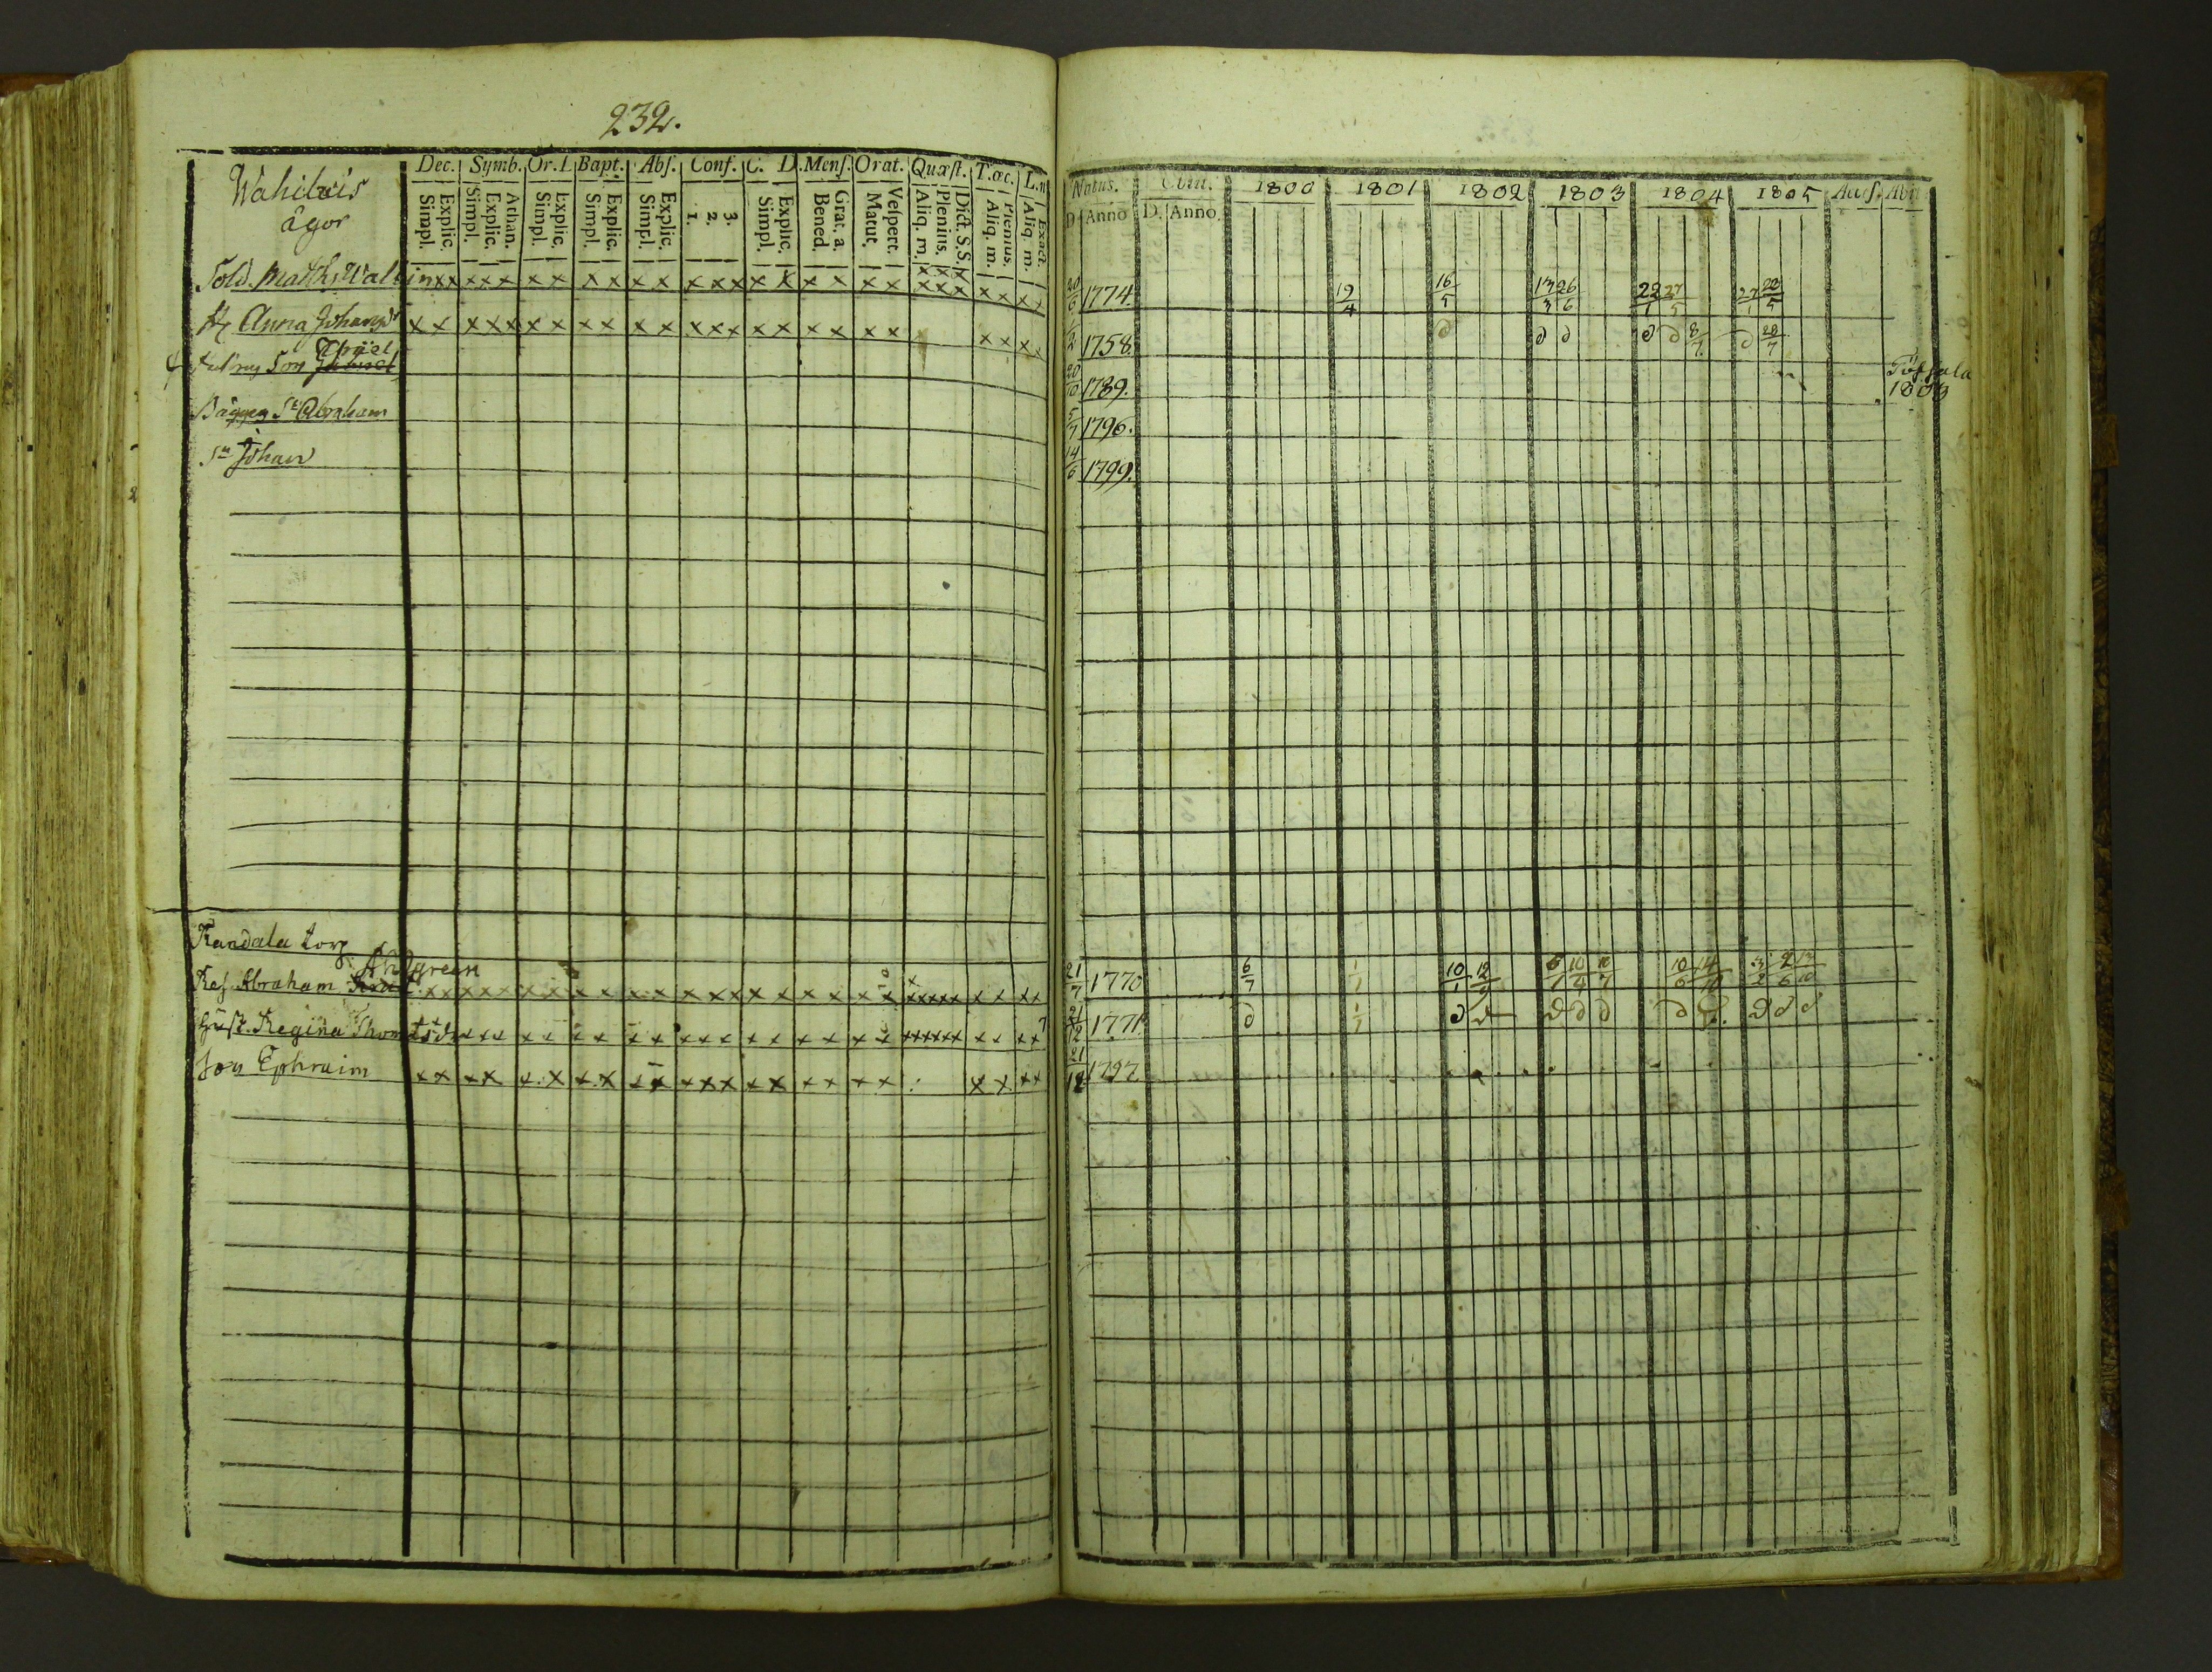 232.
Dec. Symb. Or. Bapt. Abſ. Conf. C. D. Menſ. Orat. Quæſt. T. œc. L.
Explic. Simpl. Athan. Explic. Simpl. Explic. Simpl. Explic. Simpl. Explic. Simpl. 3. 2. 1. Explic. Simpl. Grat. a. Bened. Veſpert. Matut. Dict. S.S. Plenius. Aliq. m. Plenius. Aliq. m. Exact. Aliq. m.
Natus. 1800 1801 1802 1803 1804 1805 Acceſ. Abii
D. Anno D. Anno.
ägor
Sold. Matths Wallin xx xxx xx xx xx xxx xx xx xx xxx xxx xx xx 20/6 1774. 19/4 16/5 13/3 26/6 22/1 27/5 27/1 28/5
Anna Johansdr xx xxx xx xx xx xxx xx xx xx xx xx 1758. d d d d d 8/7 d 28/7
Son 20/10 1789. 1803
Bägges Sn Abraham 5/7 1796.
Sn Johan 14/6 1799.
Randala torp
Ahlgreen
Abraham xx xxx xx xx xx xxx xx xx xx xxxxxx xx xx 21/7 1770 6/7 1/1 10/1 12/9 6/1 10/4 10/7 10/6 14/10 3/2 2/6 13/10
Hust. Regina Thomasdr xxx xx xx xx xxx xx xx xx xxxxxx xx xx 21/12 1771. d 1/1 d d d d d d d d d
Son Ephraim xx xx xx xx xx xxx xx xx xx xx xx 21/12 1797.